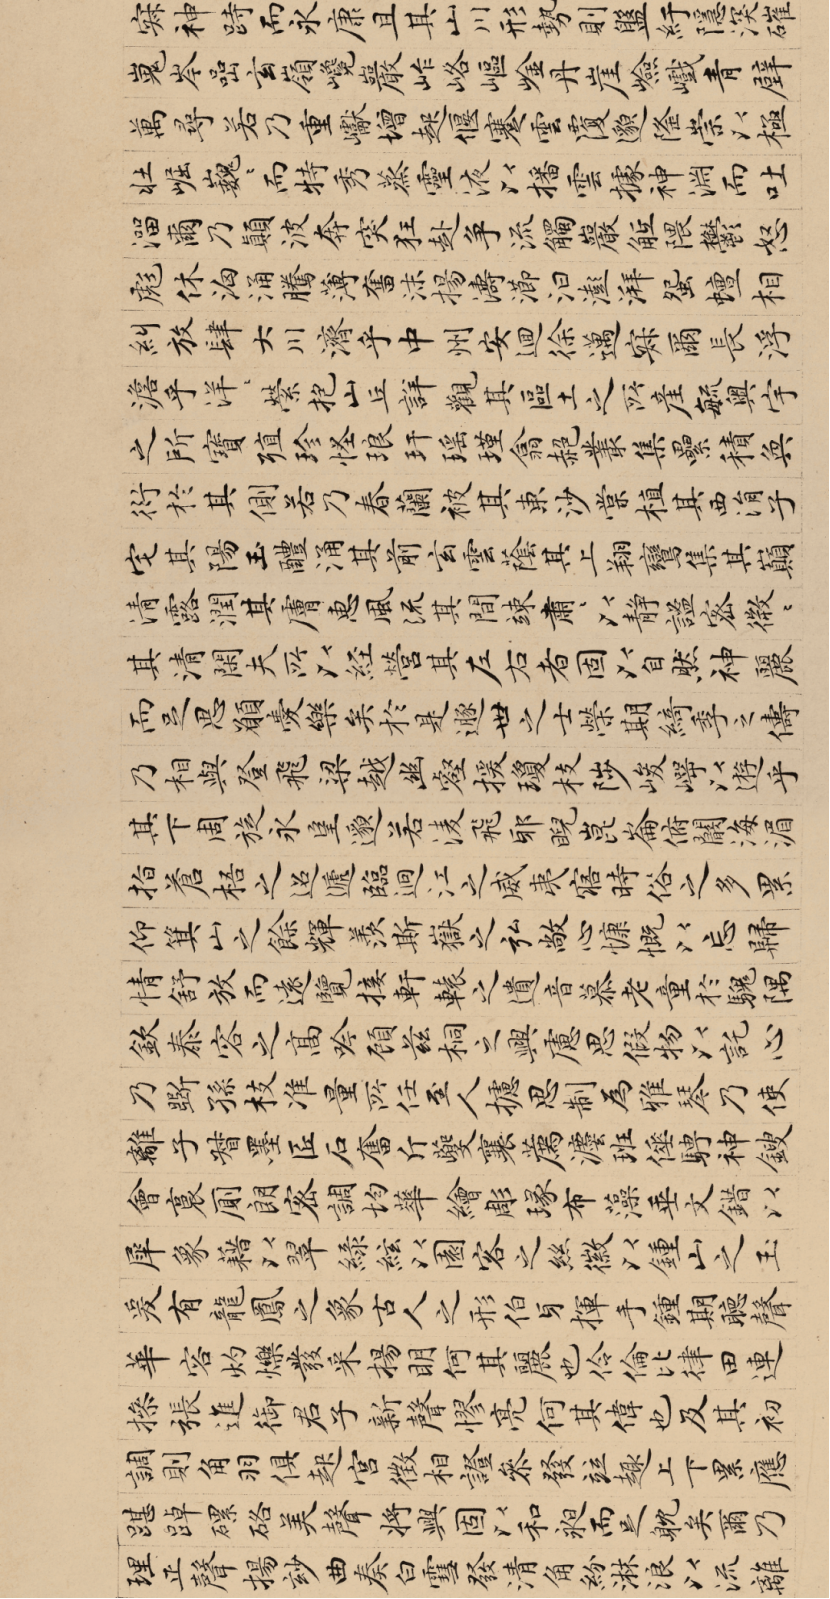 寂神跱而永康且其山川形勢則盤紆隱深磪
嵬岑嵒玄嶺巉巖岞峉嶇崟丹崖嶮巇青壁
萬尋若乃重巘增起偃蹇雲覆邈隆崇以極
壯崛巍〻而特秀蒸靈液以播雲據神淵而吐
溜爾乃顛波奔突狂赴争流觸巖觝隈鬱怒
彪休洶涌騰薄奮沫揚濤瀄汩澎湃蜿蟺相
糾放肆大川濟乎中州安迴徐邁寂爾長浮
澹乎洋〻縈抱山丘詳觀其區土之所産毓奥宇
之所寶殖珍怪琅玕瑶瑾翕赩叢集累積奐
衍於其側若乃春蘭被其東沙棠植其西涓子
宅其陽玉醴涌其前玄雲蔭其上翔鸞集其巔
清露潤其膚惠風流其間竦肅〻以静謐密微〻
其清閑夫所以経營其左右者固以自然神麗
而足思願愛樂矣於是遯世之士榮期綺季之儔
乃相與登飛梁越幽壑援瓊枝陟峻崿以遊乎
其下周旋永望邈若淩飛邪睨崑崙俯闞海湄
指蒼梧之迢遞臨迴江之威夷寤時俗之多累
仰箕山之餘輝羨斯嶽之弘敞心慷慨以忘歸
情舒放而遠覽接軒轅之遺音慕老童於騩隅
欽泰容之高吟顧茲桐之興慮思假物以託心
乃斲孫枝准量所任至人攄思制為雅琴乃使
離子督墨匠石奮斤夔襄薦灋班倕騁神鎪
會裛厠朗密調均華繪彫琢布藻垂文錯以
犀象藉以翠緑絃以園客之絲徽以鍾山之玉
爰有龍鳳之象古人之形伯牙揮手鍾期聽聲
華容灼爍發采揚明何其麗也伶倫比律田連
操張進御君子新聲憀亮何其偉也及其初
調則角羽俱起宮徵相證參發竝趣上下累應
踸踔磥硌美聲將興固以和昶而足躭矣爾乃
理正聲揚妙曲奏白雪發清角紛淋浪以流離